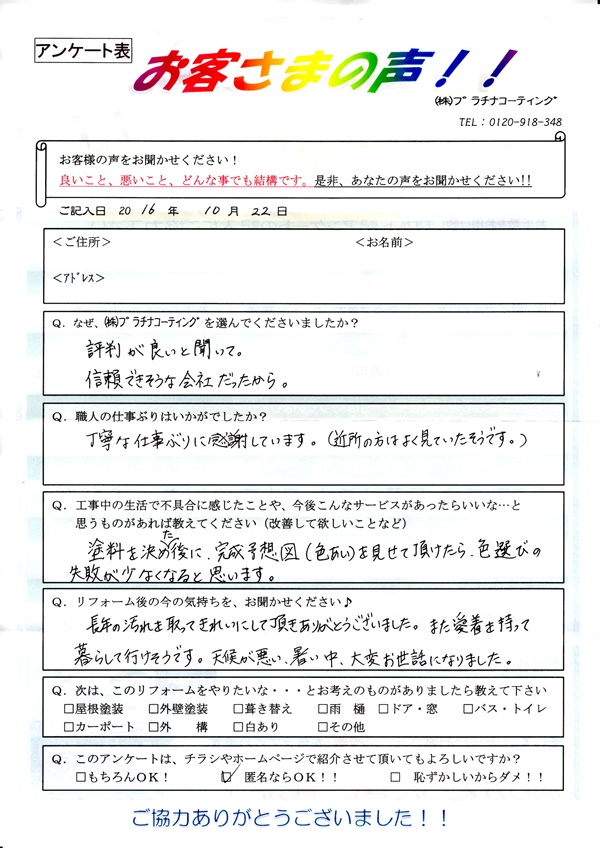 アンケート表
お客さまの声！！
㈱プラチナコーティング
TEL：0120-918-348
お客様の声をお聞かせください！
良いこと、悪いこと、どんな事でも結構です。是非、あなたの声をお聞かせください!!
ご記入日 2016 年 10 月 22 日
＜ご住所＞ ＜お名前＞
＜ｱﾄﾞﾚｽ＞
Q．なぜ、㈱プラチナコーティングを選んでくださいましたか？
評判が良いと聞いて。
信頼できそうな会社だったから。
Q．職人の仕事ぶりはいかがでしたか？
丁寧な仕事ぶりに感謝しています。（近所の方はよく見ていたそうです。）
Q．工事中の生活で不具合に感じたことや、今後こんなサービスがあったらいいな…と
思うものがあれば教えてください（改善して欲しいことなど）
塗料を決めた後に、完成予想図（色あい）を見せて頂けたら、色選びの
失敗が少なくなると思います。
Q．リフォーム後の今の気持ちを、お聞かせください♪
長年の汚れを取ってきれいにして頂きありがとうございました。また愛着を持って
暮らして行けそうです。天候が悪い、暑い中、大変お世話になりました。
Q．次は、このリフォームをやりたいな・・・とお考えのものがありましたら教えて下さい
□屋根塗装 □外壁塗装 □葺き替え □雨 樋 □ドア・窓 □バス・トイレ
□カーポート □外 構 □白あり □その他
Q．このアンケートは、チラシやホームページで紹介させて頂いてもよろしいですか？
□もちろんOK！ ☑ 匿名ならOK！！ □ 恥ずかしいからダメ！！
ご協力ありがとうございました！！